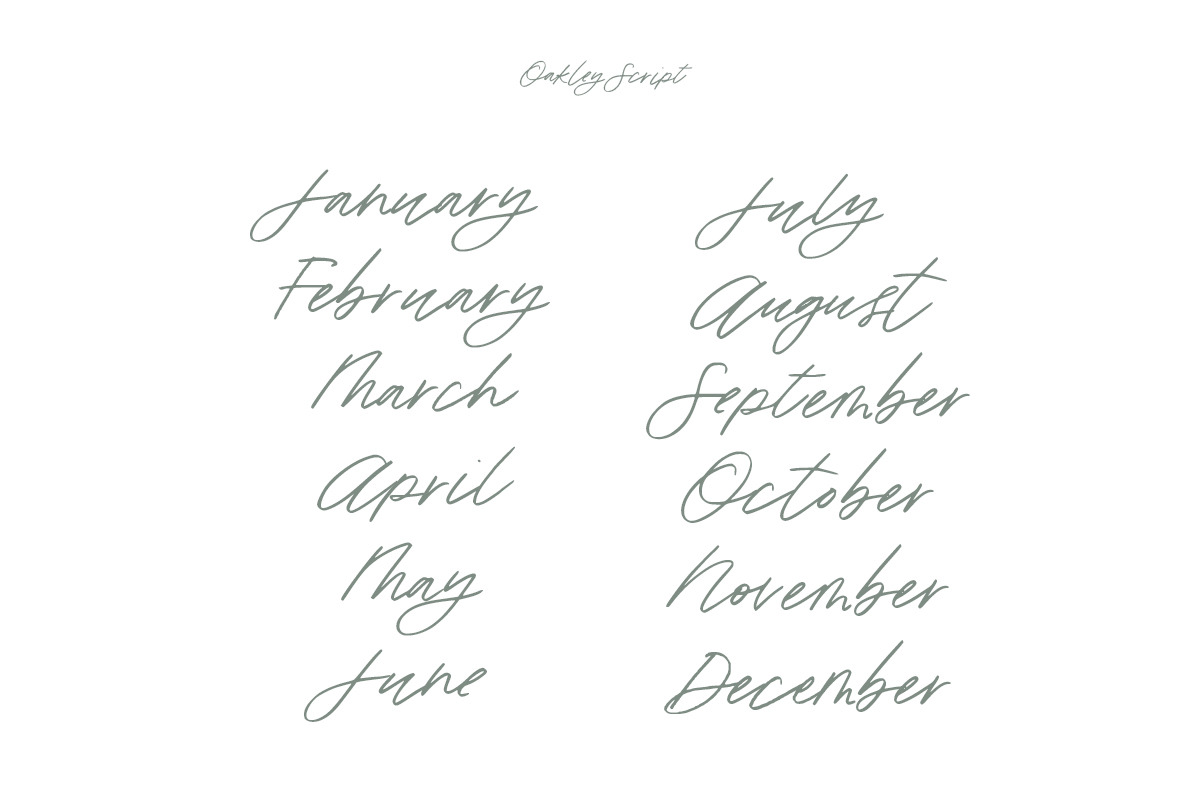 Oakley Script
January
February
March
April
May
June
July
August
September
October
November
December